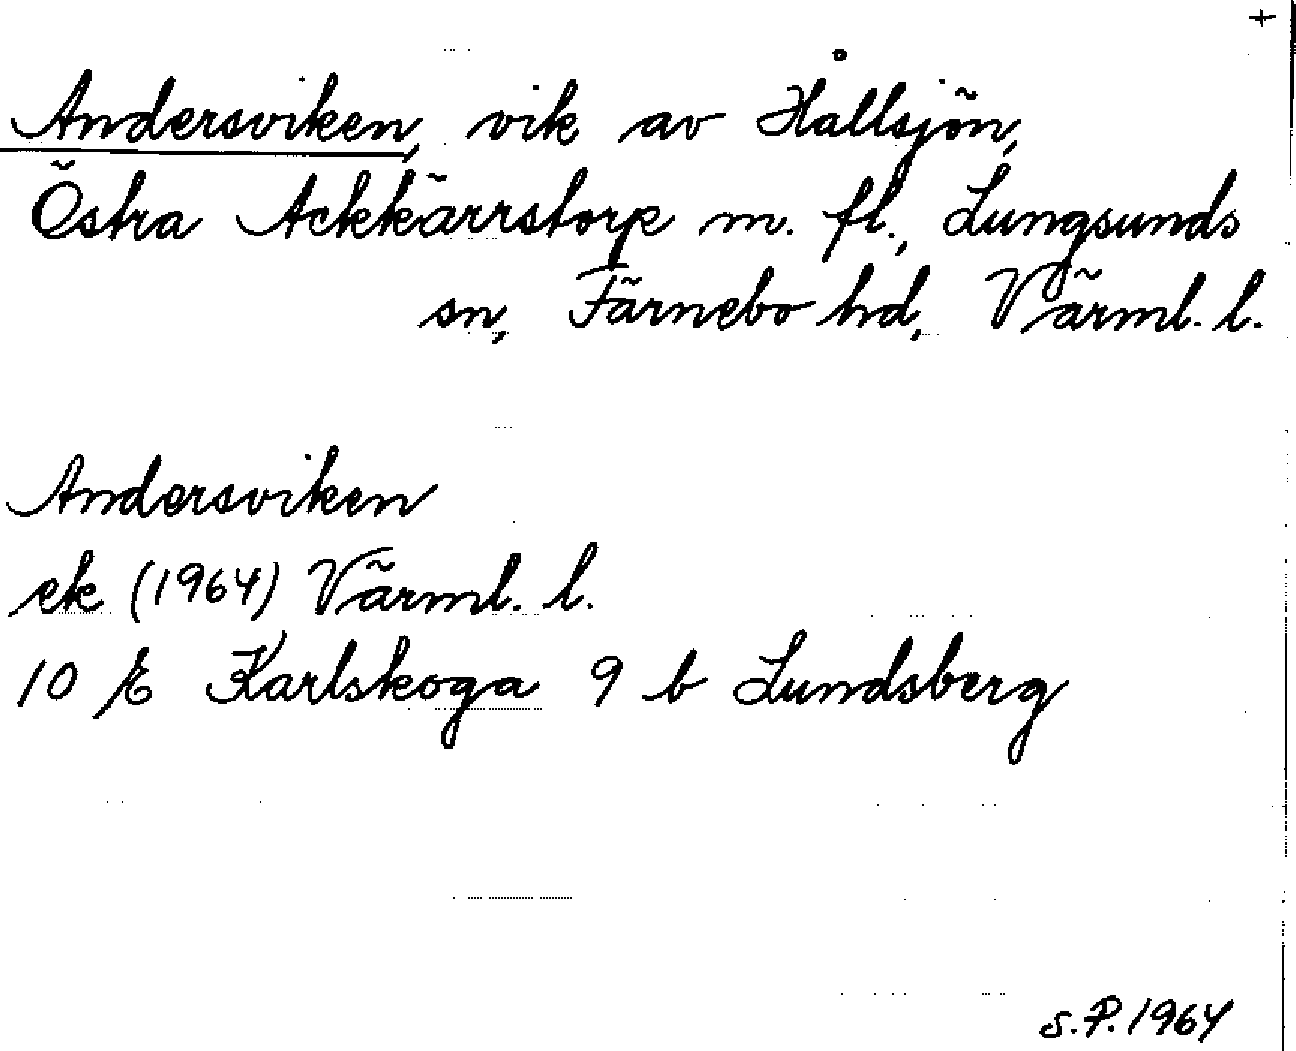 +
Andersviken, vik av Hållsjön,
Östra Ackkärrstorp m. fl., Lungsunds
sn, Färnebo hd, Värml. l.
Andersviken
ek (1964) Värml. l.
10 E Karlskoga 9 b Lundsberg
S.P. 1964